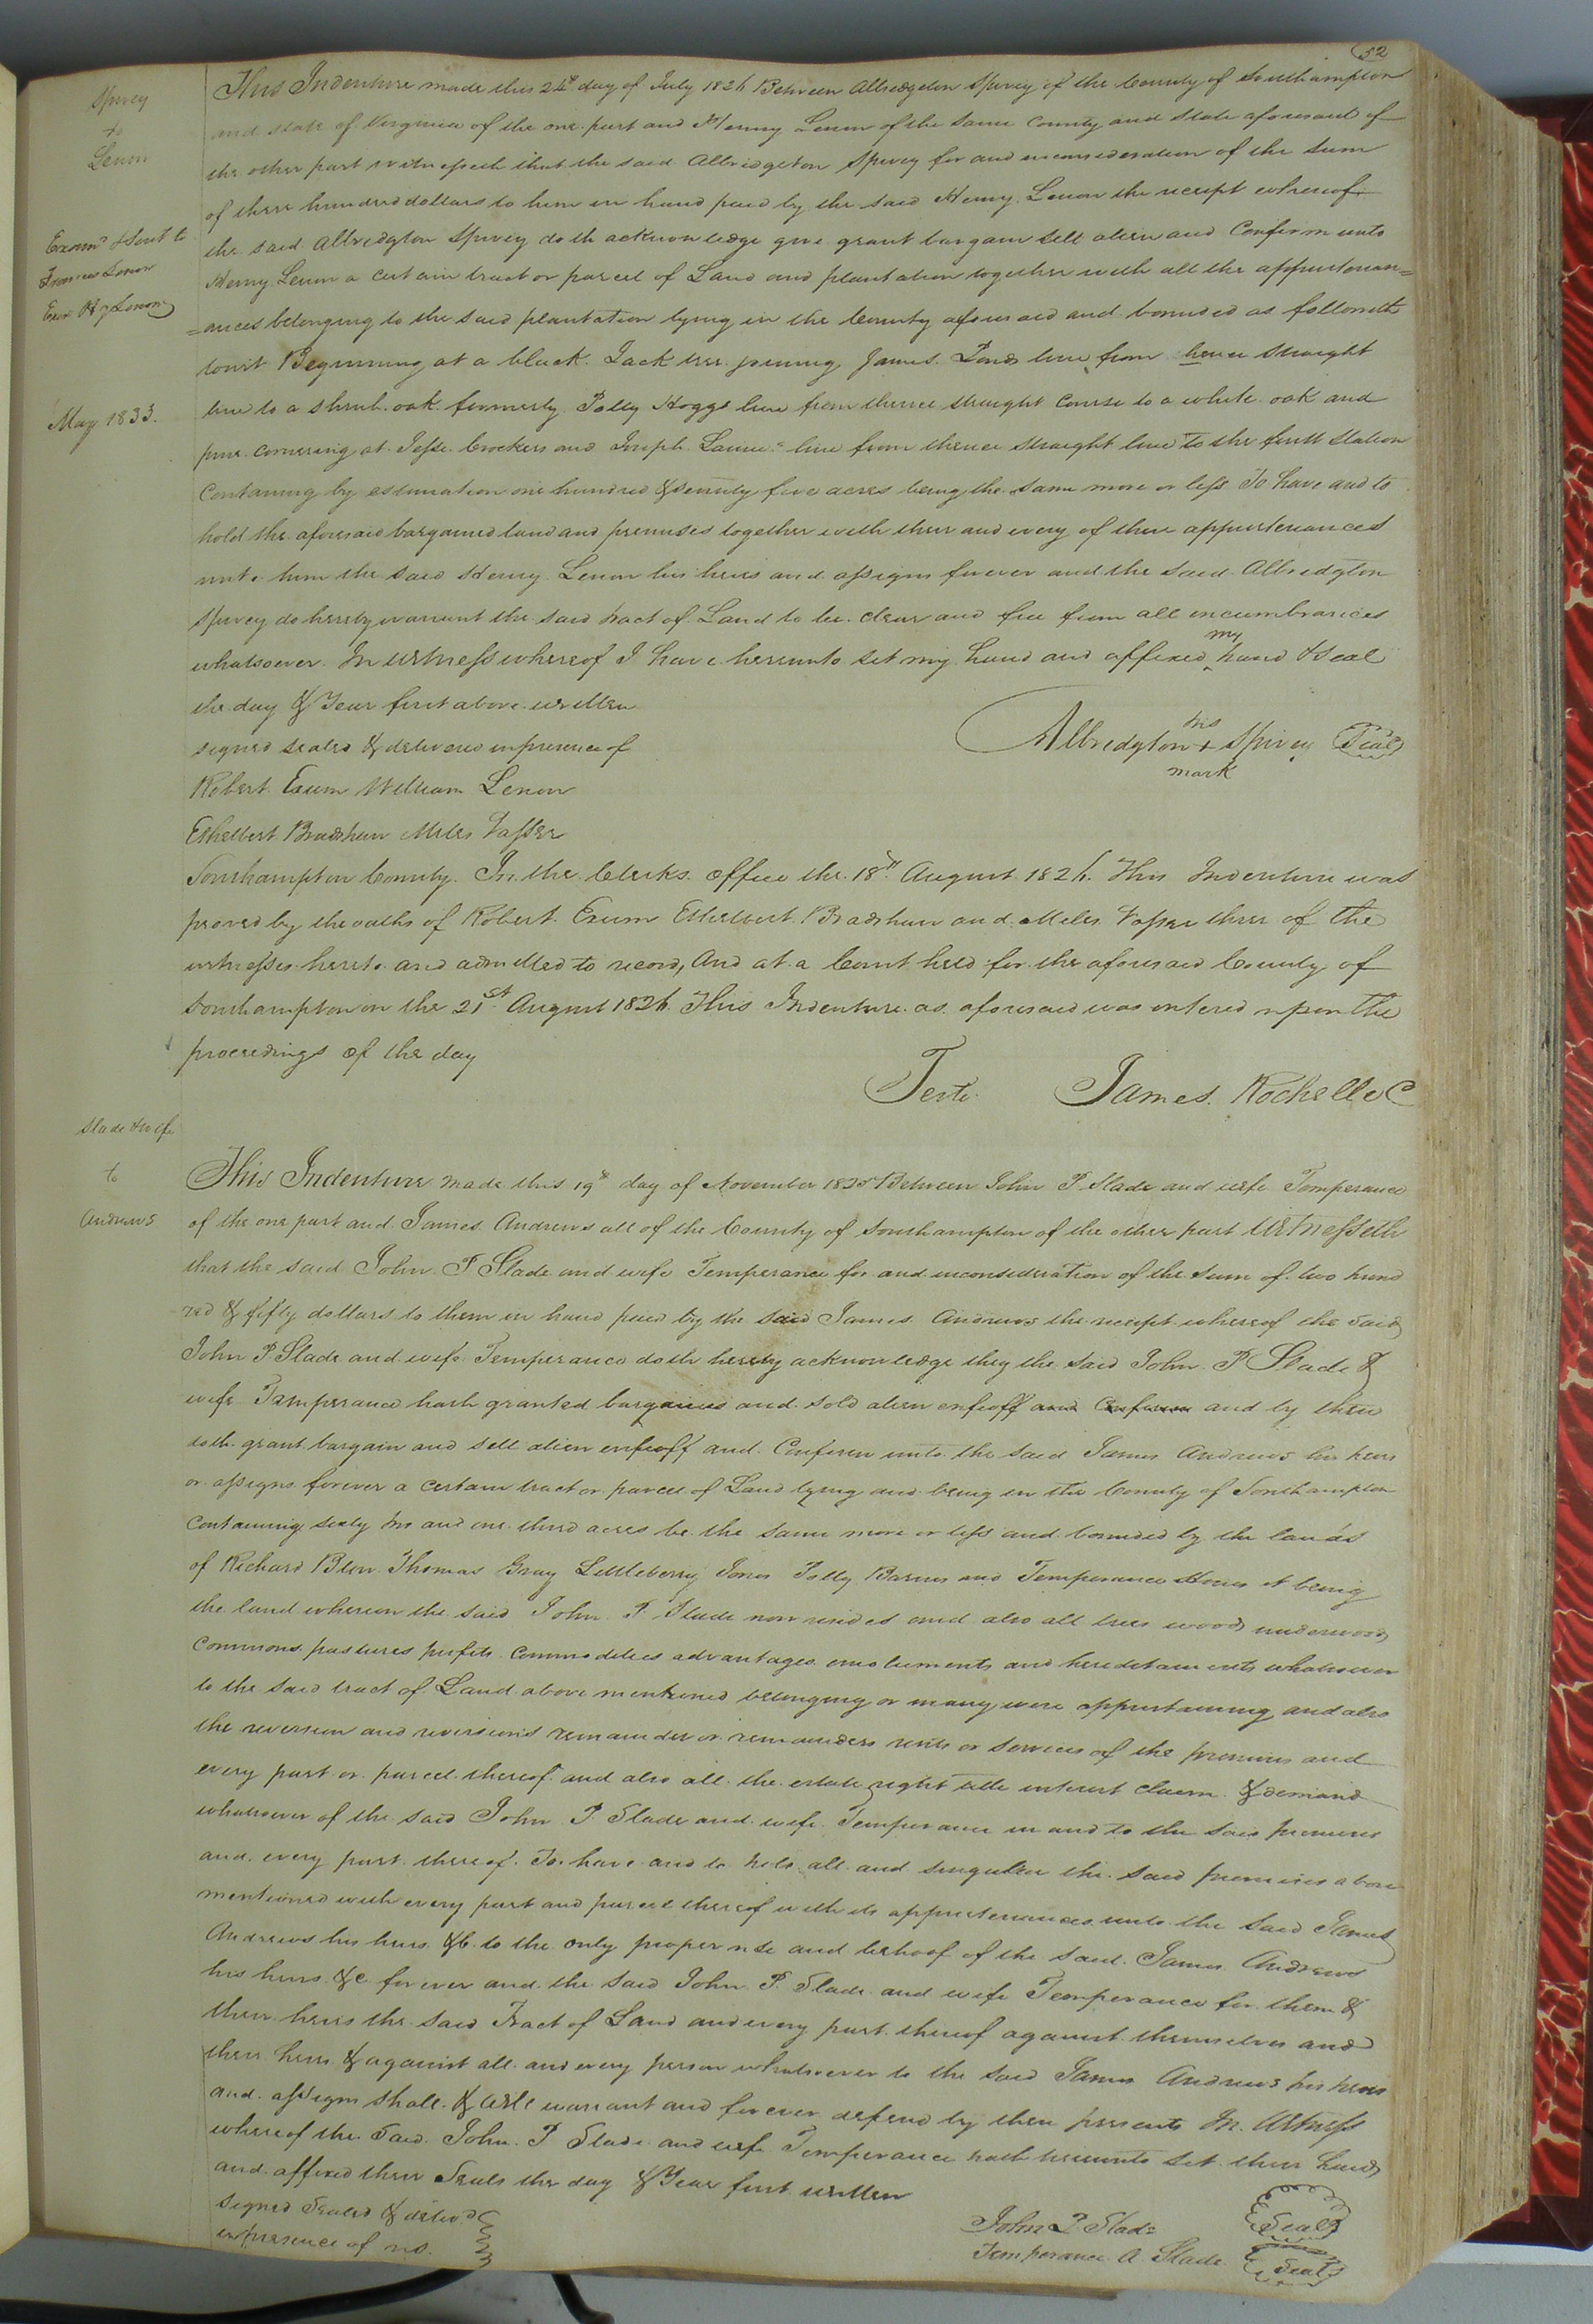 52
Spivey
to
Lenow
Examd & Sent to
Frances Lenow
Exor Hy Lenow
May 1833.
This Indenture made this 24th day of July 1826 Between Albridgeton Spivey of the County of Southampton
and state of Virginia of the one part and Henry Lenow of the same County and State aforesaid of
the other part witnesseth that the said Albridgeton Spivey for and inconsideration of the sum
of three hundred dollars to him in hand paid by the said Henry Lenow the receipt whereof
the said Albridgton Spivey doth acknowledge give grant bargain sell alien and Confirm unto
Henry Lenow a certain tract or parcel of Land and plantation together with all the appurtenan=
=ances belonging to the said plantation lying in the County aforesaid and bounded as followeth
towit Beginning at a black Jack tree joining James Ponds line from hence straight
line to a shrub oak formerly Polly Hoggs line from thence straight course to a white oak and
pine cornering at Jesse Crockers and Joseph line from thence straight line to the first station
Containing by estimation one hundred & seventy five acres being the same more or less To have and to
hold the aforesaid bargained land and premises together with their and every of their appurtenances
unto him the said Henry Lenow his heirs and assigns forever and the said Albridgton
Spivey do hereby warrant the said tract of Land to be clear and free from all incumbrances
whatsoever. In witness whereof I have hereunto set my hand and affixed my hand & Seal
the day & Year first above written
signed sealed & delivered inpresence of
Albridgton his + mark Spivey Seal
Robert Exum William Lenow
Ethelbert Bradshaw Miles Vasser
Southampton County. In the Clerks office the 18th August 1826. This Indenture was
proved by the oaths of Robert Exum Ethelbert Bradshaw and Miles Vasser three of the
witnesses hereto and admitted to record, And at a Court held for the aforesaid County of
Southampton on the 21st August 1826 This Indenture as aforesaid was entered upon the
proceedings of the day
Teste James Rochelle C
Slade & wife
to
Andrews
This Indenture made this 19th day of November 1825 Between John P Slade and wife Temperance
of the one part and James Andrews all of the County of Southampton of the other part Witnesseth
that the said John P Slade and wife Temperance for and inconsideration of the sum of two hund
red & fifty dollars to them in hand paid by the said James Andrews the receipt whereof the said
John P Slade and wife Temperance doth hereby acknowledge they the said John P Slade &
wife Temperance hath granted bargained and sold alien enfeoff and Confirm and by these
doth grant bargain and sell alien enfeoff and Confirm unto the said James Andrews his heirs
or assigns forever a certain tract or parcel of Land lying and being in the County of Southampton
Containing sixty and one third acres be the same more or less and bounded by the lands
of Richard Blow Thomas Gray Littleberry Jones Polly Barnes and Temperance it being
the land whereon the said John P. Slade now resides and also all trees woods underwoods
Commons pastures profits commodities advantages emoluments and hereditaments whatsoever
to the said tract of Land above mentioned belonging or inany wise appertaining and also
the reversion and reversions remainder or remainders rents or services of the premises and
every part or parcel thereof and also all the estate right title interest claim & demand
whatsoever of the said John P. Slade and wife Temperance in and to the said premises
and every part thereof. To have and to hold all and singular the said premises above
mentioned with every part and parcel thereof with its appurtenances unto the said James
Andrews his heirs &C to the only proper use and behoof of the said James Andrews
his heirs &c forever and the said John P. Slade and wife Temperance for them &
their heirs the said Tract of Land and every part thereof against themselves and
their heirs & against all and every person whatsoever to the said James Andrews his heirs
and assigns shall & will warrant and forever defend by these presents In Witness
whereof the said John P Slade and wife Temperance hath hereunto set their hands
and affixed their Seals the day & Year first written
signed Sealed & deliverd
inpresence of us.
John P Slade Seal
Temperance A Slade Seal